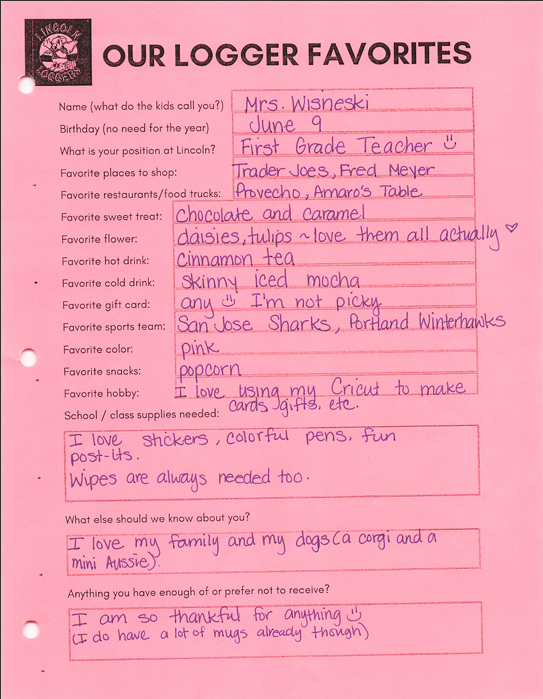 LINCOLN
LOGGERS
OUR LOGGER FAVORITES
Name (what do the kids call you?) Mrs. Wisneski
Birthday (no need for the year) June 9
What is your position at Lincoln? First Grade Teacher
Favorite places to shop: Trader Joes, Fred Meyer
Favorite restaurants/food trucks: Provecho, Amaro's Table
Favorite sweet treat: Chocolate and caramel
Favorite flower: daisies, tulips ~ love them all actually ♡
Favorite hot drink: Cinnamon tea
Favorite cold drink: skinny iced mocha
Favorite gift card: any ☺ I'm not picky
Favorite sports team: San Jose Sharks, Portland Winterhawks
Favorite color: pink
Favorite snacks: popcorn
Favorite hobby: I love using my Cricut to make
cards, gifts, etc.
School / class supplies needed:
I love stickers, colorful pens, fun
post-its.
Wipes are always needed too.
What else should we know about you?
I love my family and my dogs (a corgi and a
mini Aussie).
Anything you have enough of or prefer not to receive?
I am so thankful for anything ☺
(I do have a lot of mugs already though)